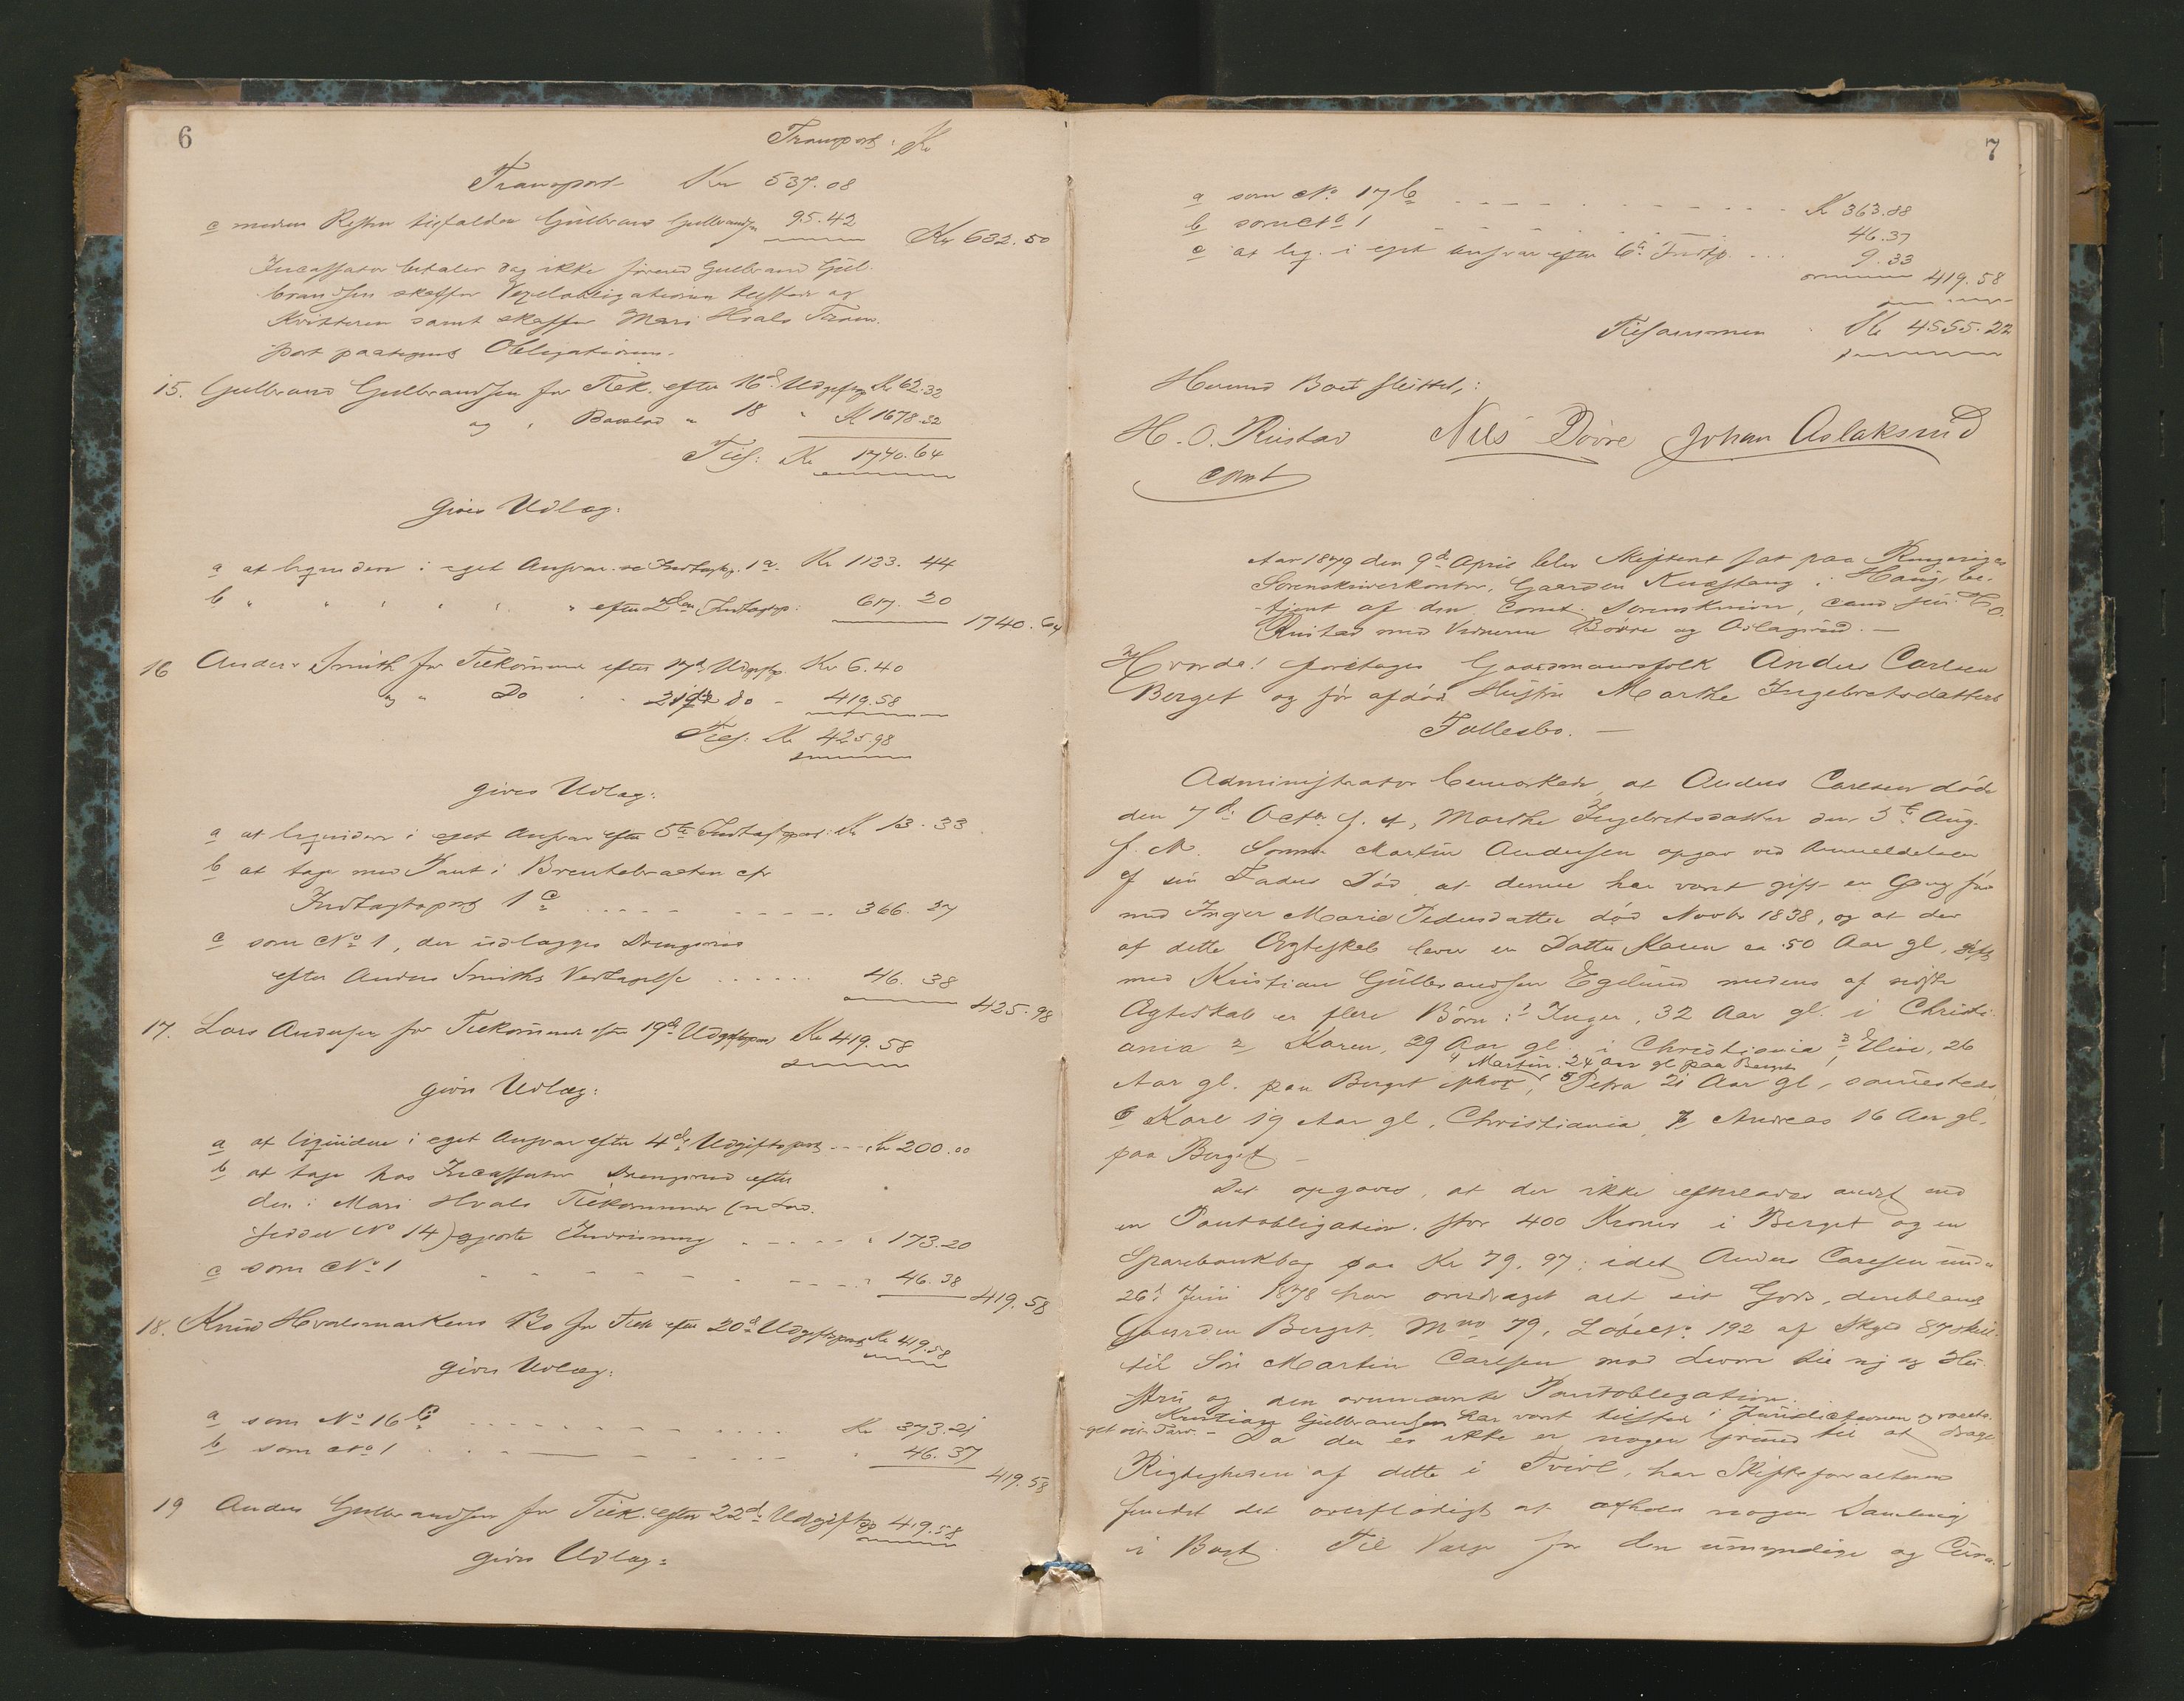 6
Transport: Kr
Transport Kr 537.08
c medens Resten tilfalder Gulbrand Gulbrandsen 95.42 Kr 632.50
Incassator betaler dog ikke førend Gulbrand Gul-
brandsen skaffer Vexelobligationen tilstede og
Kvitteren samt skaffer Mari Hvals Trans-
port paategnet Obligationen.
15. Gulbrand Gulbrandsen for Tilk. efter 16d Udgiftsp Kr 62.32
og " Boeslod " 18 " Kr 1678.32
Tils: Kr 1740.64
gives Udlæg:
a at liquidere i eget Ansvar Indtægtsp. 1 a. Kr 1123.44
b " " " " " " efter 2den Indtægtsp: 617.20 1740.64
16 Anders Smith for Tilkommende efter 17d Udgiftsp. Kr 6.40
og " Do 21de do - 419.58
Tils: Kr 425.98
gives Udlæg:
a at liquidere i eget Ansvar efter 5te Indtægtspost: Kr 13.33
b at tage med Pant i Brentebraaten efter
Indtægtspost 1 c 366.27
c som No 1, der udlægges Drengsrud
efter Anders Smiths Vedtagelse 46.38
425.98
17. Lars Andersen for Tilkommende efter 19d Udgiftspost Kr 419.58
gives Udlæg:
a at liquidere i eget Ansvar efter 4d Udgiftspost Kr 200.00
b at tage hos Incassator Drengsrud efter
den i Mari Hvals Tilkommende
No 14) gjorte Indvisning 173.20
c som No 1 46.38
419.58
18. Knud Hvalsmarkens Bo for Tilk efter 20d Udgiftspost Kr 419.58
gives Udlæg:
a som No 16 b Kr 373.21
b som No 1 46.37
419.58
19 Anders Gulbrandsen for Tilk. efter 22d Udgiftsp 419.58
gives Udlæg:
7
a som No. 17 b K 363.88
b som No 1 46.37
c at liq. i eget Ansvar efter 6te Indtp. 9.33
419.58
Tilsammen Kr 4555.22
Hermed Boet sluttet:
H. O. Rustad Nils Dövre Johan Aslaksrud
const
Aar 1879 den 9d April blev Skifteret sat paa Ringeriges
Sorenskriverkontor, Gaarden Kvæstang i Haug, be-
tjent af den const. Sorenskriver, cand jur. H. O.
Rustad med Vidnerne Dövre og Aslagsrud. —
Hvorda! foretoges Gaardmandsfolk Anders Carlsen
Berget og før afdød Hustru Marthe Ingebretsdatters
Fællesbo. —
Administrator bemærkede, at Anders Carlsen døde
den 7d Octbr. f. A, Marthe Ingebretsdatter den 3te Aug.
f. A. Sønnen Martin Andersen opgav ved Anmeldelsen
af sin Faders Død, at denne har været gift en Gang før
med Inger Marie Pedersdatter død Novbr 1838, og at der
af dette Ægteskab lever en Datter Karen ca 50 Aar gl, gift
med Kristian Gulbrandsen Egelund medens af sidste
Ægteskab er flere Børn: 1 Inger, 32 Aar gl. i Christi-
ania 2 Karen, 29 Aar gl i Christiania, 3 Eline, 26
4 Martin 24 Aar gl paa Berget
Aar gl. paa Berget, 5 Petra 21 Aar gl, sammesteds,
6 Karl 19 Aar gl, Christiania, 7 Andreas 16 Aar gl.
paa Berget —
Det opgaves, at der ikke efterlodes andet end
en Pantobligation, stor 400 Kroner i Berget og en
Sparebankbog paa Kr 79.97; idet Anders Carlsen under
26d Juni 1878 har overdraget alt sit Gods, deriblandt
Gaarden Berget, Mno 79, Løbeno. 192 af Skyld 87 skill.
til Søn Martin Carlsen mod Livøre til sig og Hu-
stru og den ovennævnte Pantobligation.
Kristian Gulbrandsen har været tilstede i Juridictionen og vareta-
get sit Tarv. - Da der er ikke er nogen Grund til at drage
Rigtigheden af dette i Tvivl, har Skifteforvalteren
fundet det overflødigt at afholde nogen Samling
i Boet. Til Værge for den umyndige og Cura-